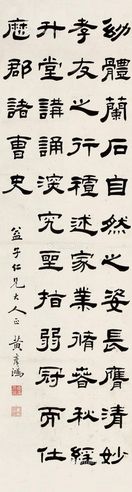 幼體蘭石自然之姿長膺清妙
孝友之行述家業脩春秋經
升堂講誦深究聖指弱冠而仕
歷郡諸曹史
益子仁兄大人正 黃彥鴻